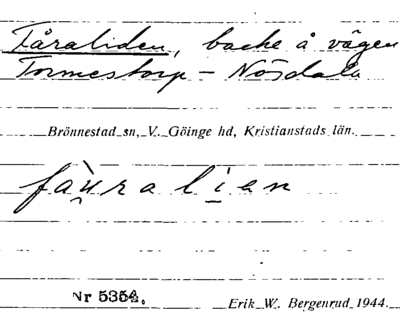 Fåraliden, backe å vägen
Tormestorp - Nösdala
Brönnestad sn, V. Göinge hd, Kristianstads län.
fàu̯ralien
Nr 5354.
Erik W. Bergenrud 1944.